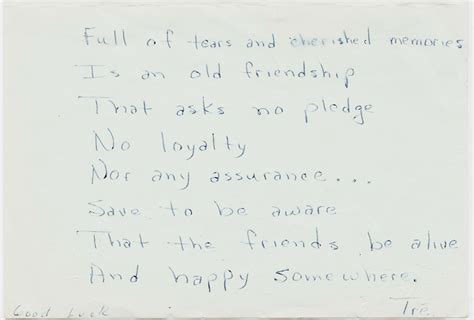 Full of tears and cherished memories
Is an old friendship
That asks no pledge
No loyalty
Nor any assurance...
Save to be aware
That the friends be alive
And happy somewhere.
Good Luck Tre.